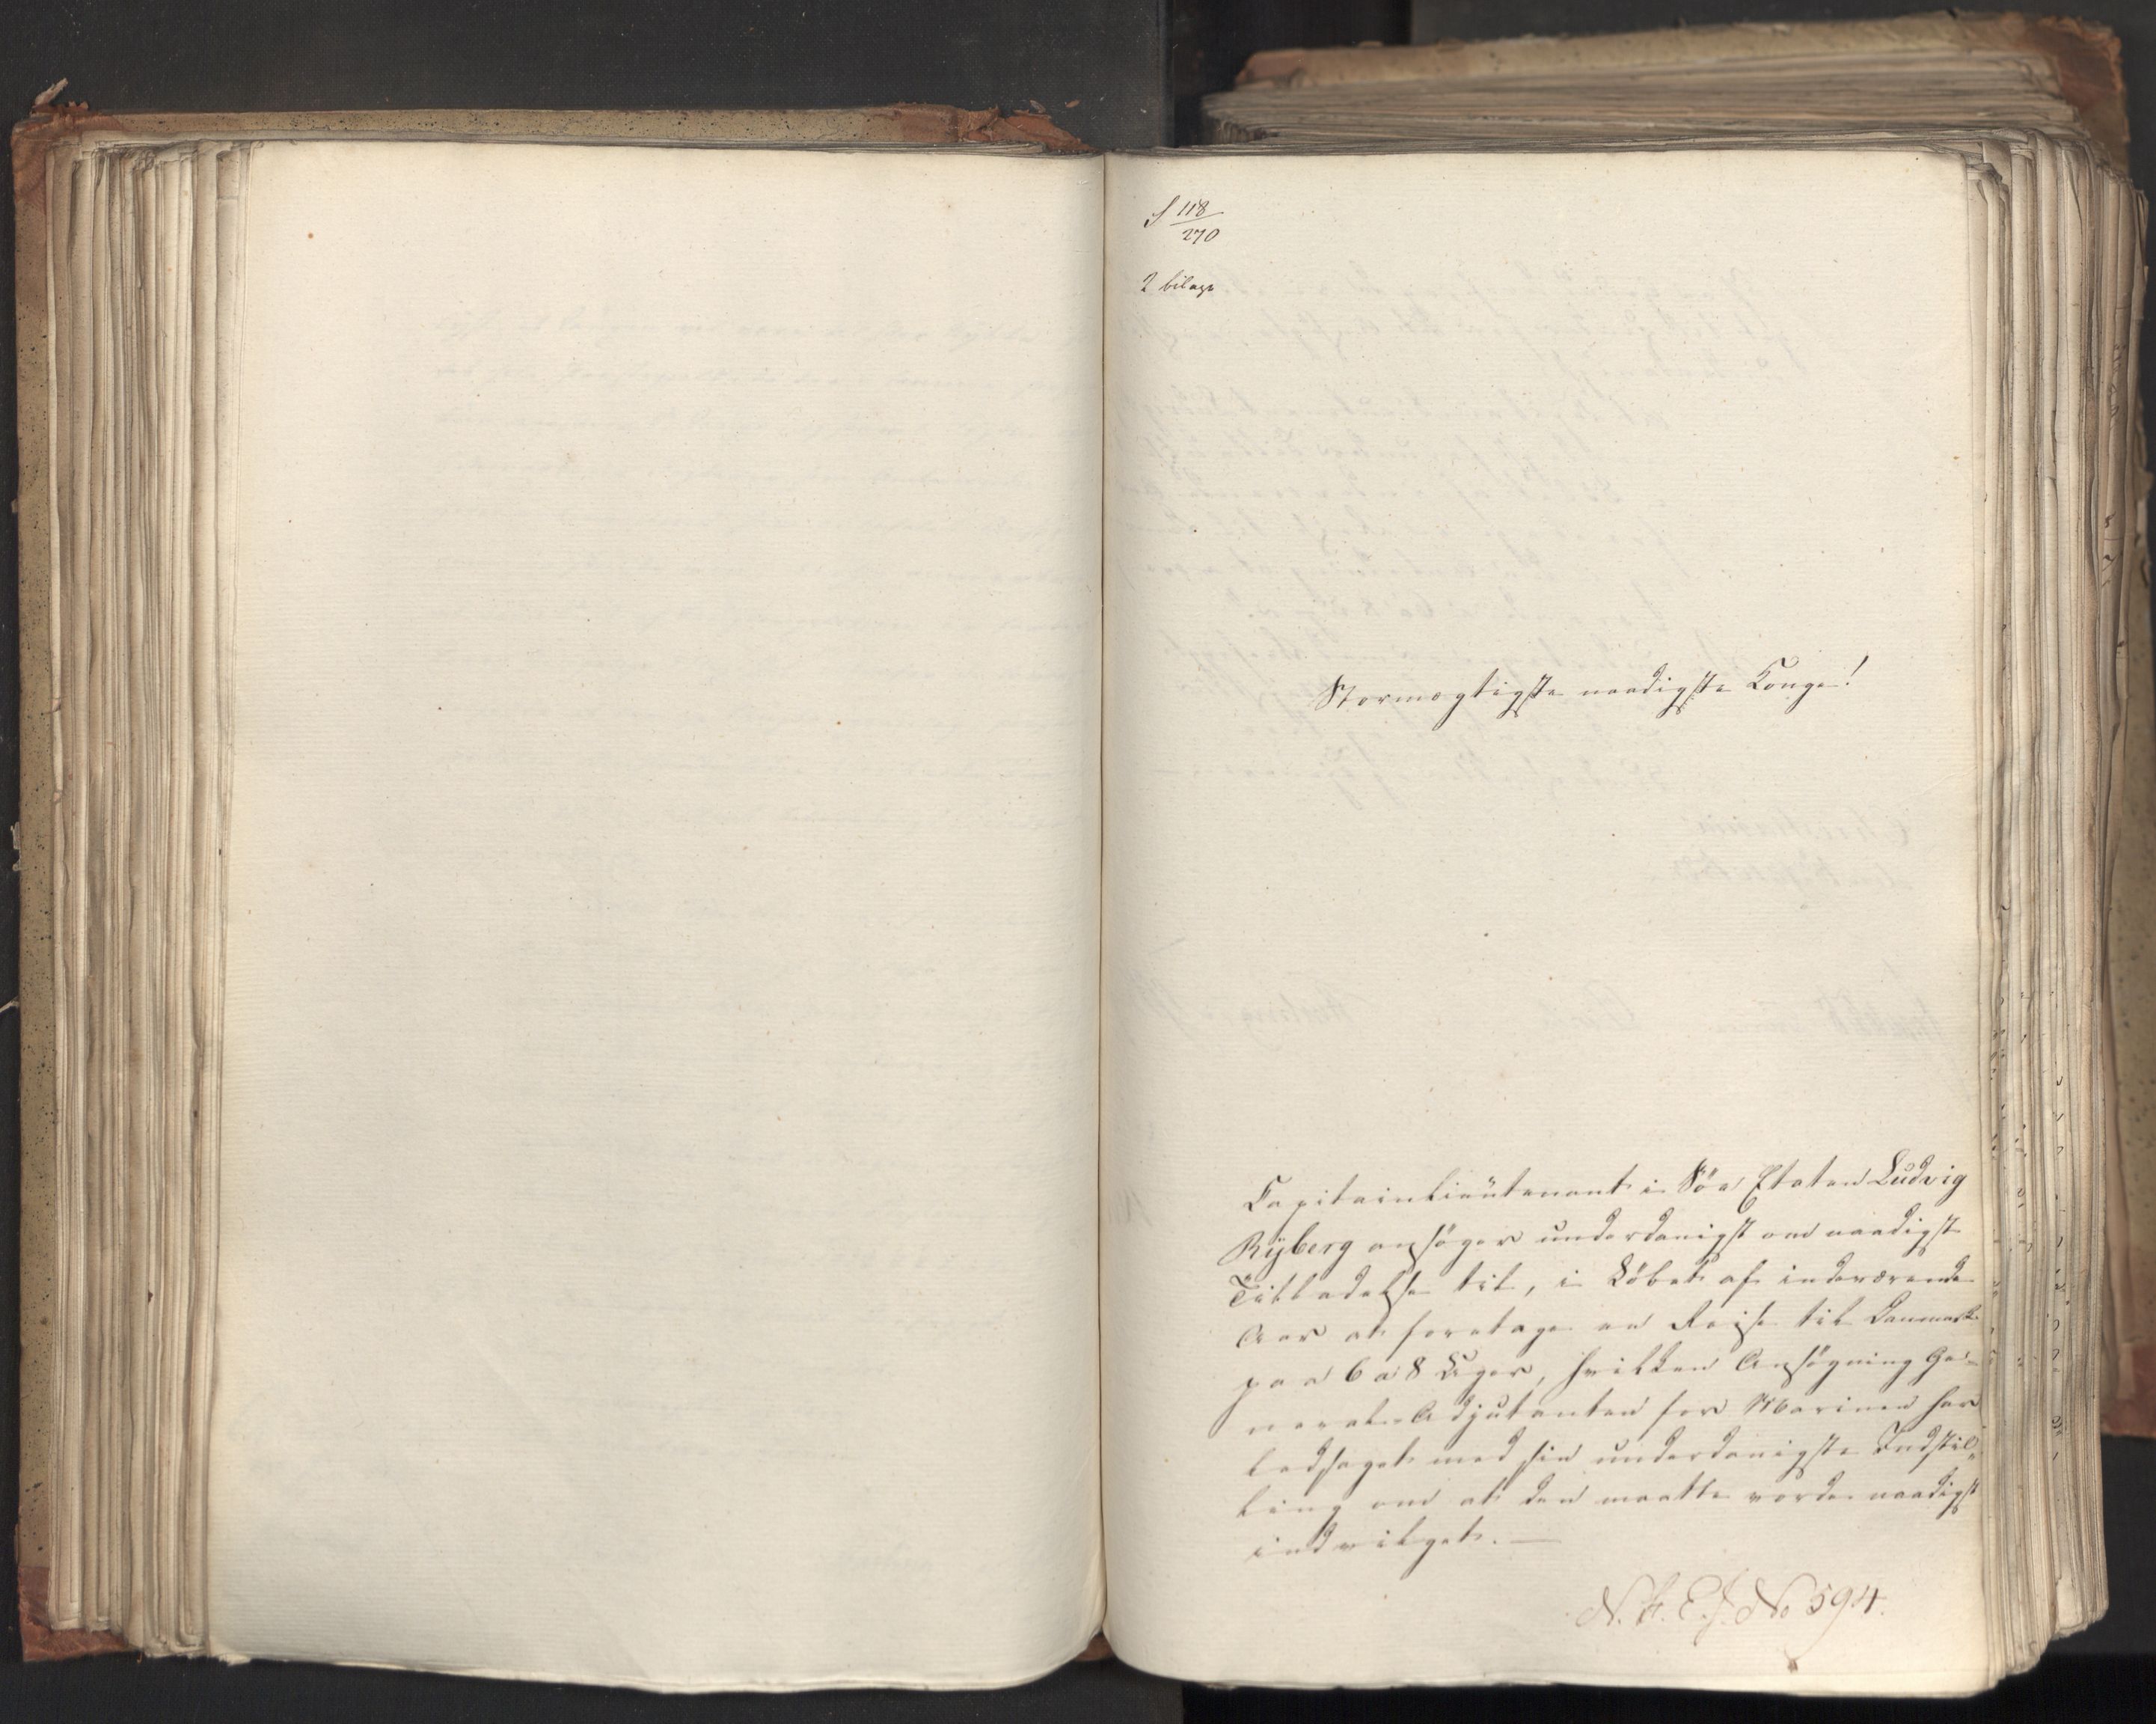 S 118/270
2 bilage
Stormægtigste naadigste Konge!
Capitainlieutenant i Søe Etaten Ludvig
Ryberg ansøger underdanigst om naadigst
Tilladelse til, i Løbet af indeværende
Aar at foretage en Reise til Danmark
paa 6 a 8 Uger, hvilken Ansøgning Ge-
neral-Adjutanten for Marinen har
ledsaget med sin underdanigste Indstil-
ling om at den maatte vorde naadigst
indvilget. —
No 594.